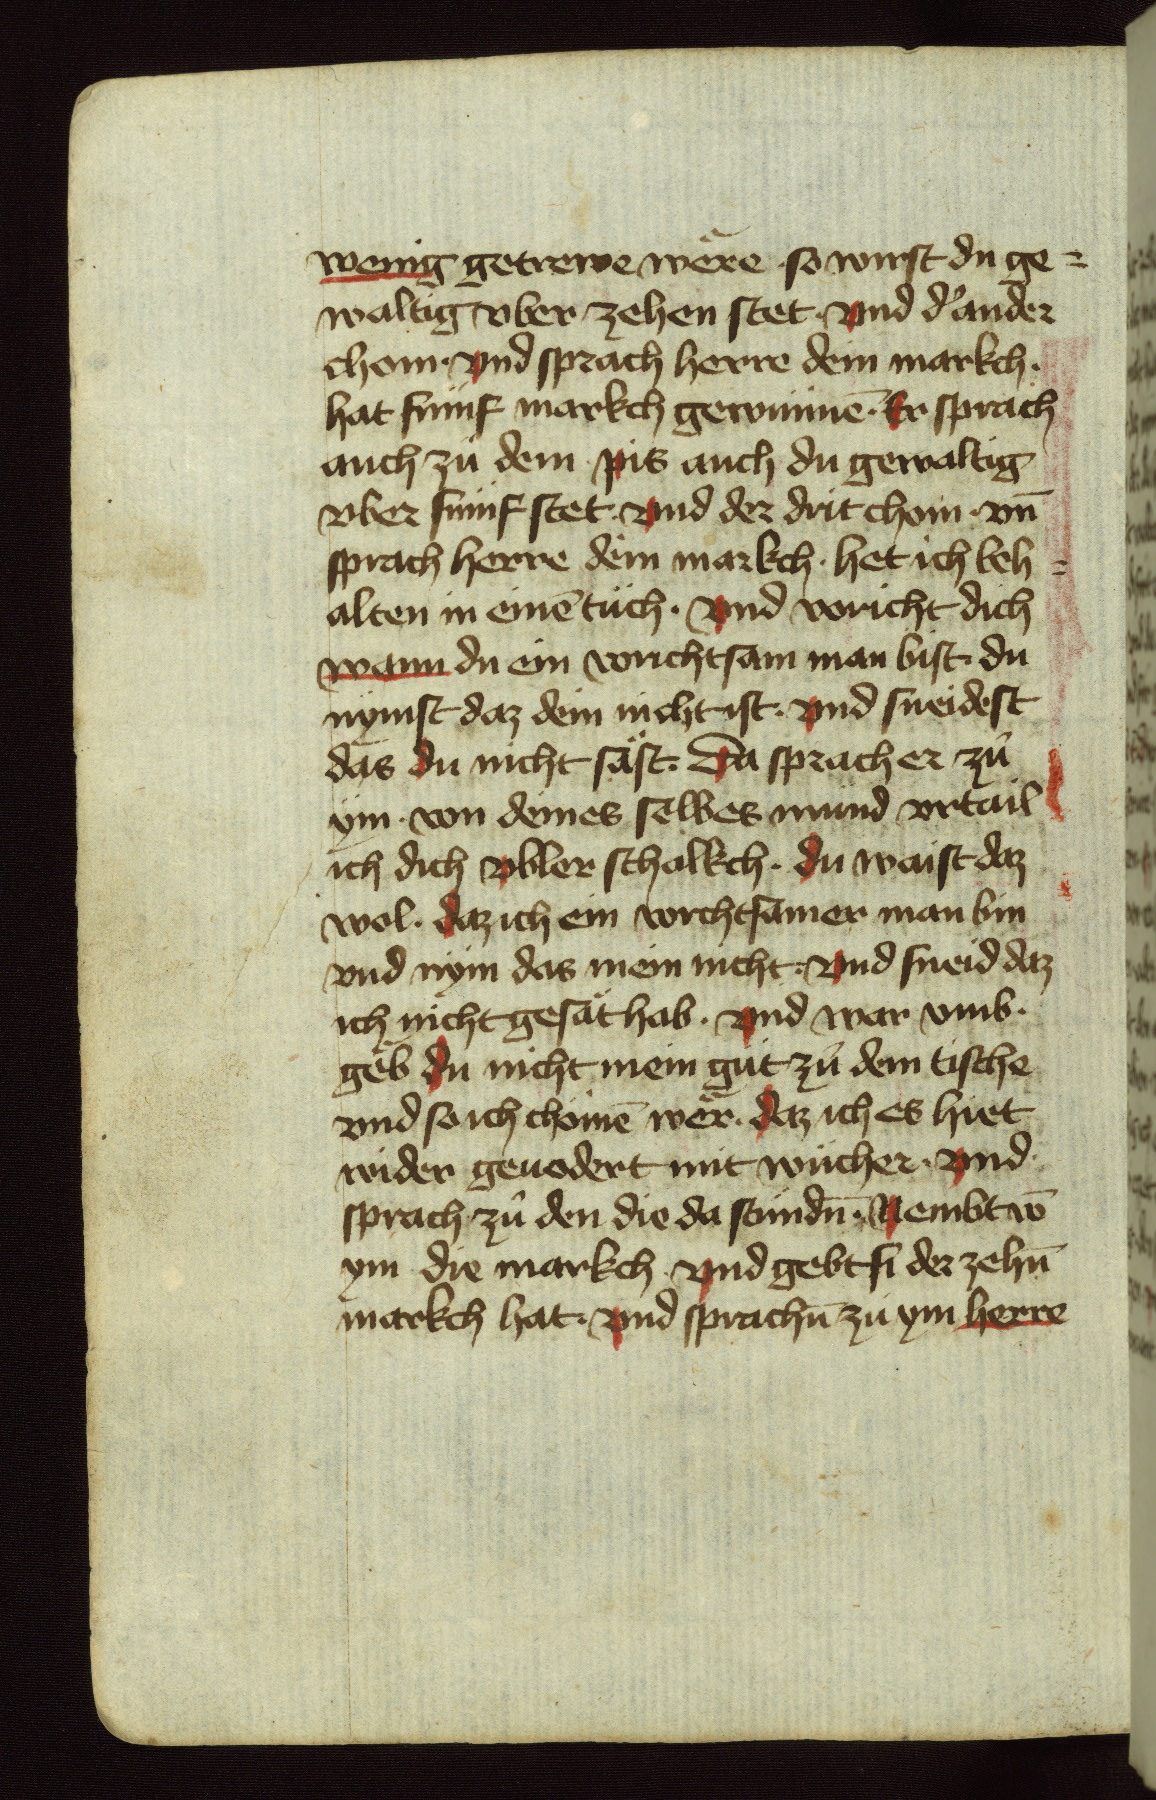 wenig getrewe wëre · so wirst du ge=
waltig vber zehen stet · vnd d' ander
chom · vnd sprach herre dein markch ·
hat fünif markch gewunnē · Er sprach
auch zů dem · pis auch du gewaltig
vber fünif stet · vnd der drit chom · vn̄
sprach herre dein markch · het ich beh=
alten in einē tüch · vnd voricht dich
wann du ein vorichtsam man bist · du
nymst daz dein nicht ist · vnd sneidest
das du nicht säst · Da sprach er zů
ym · von deines selbes mund vrtail
ich dich vbler schalkch · du waist daz
wol · daz ich ein vorchtsamer man bin
vnd nym das mein nicht · vnd sneid daz
ich nicht gesät hab · vnd war vmb ·
gëb du nicht mein güt zů dem tische
vnd so ich chömē wër · daz ich es hiet
wider geuodert mit wücher · vnd
sprach zů den die da stündn̄ · Nembt vō
ym die markch vnd gebt si der zehn̄
markch hat · vnd sprachn̄ zů ym herre